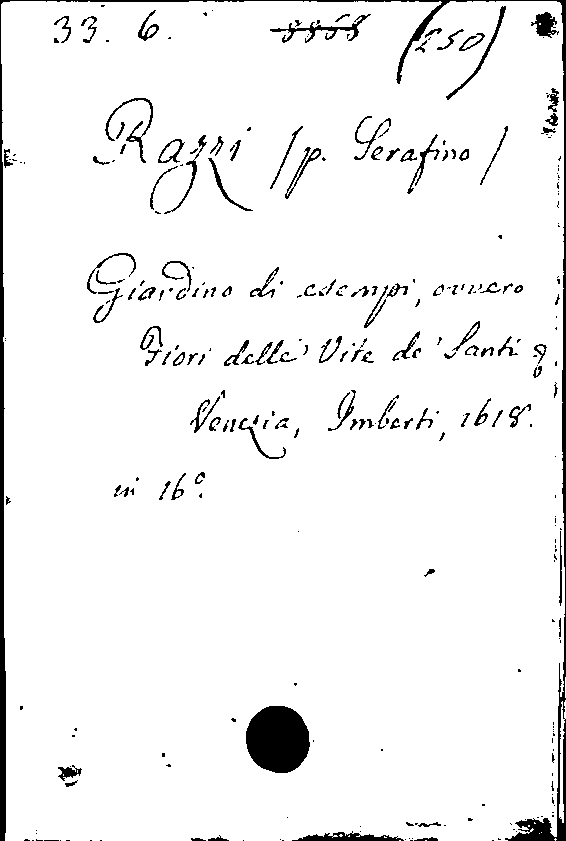 33. 6. 8868 (250)
Razzi /p. Serafino/
Giardino di esempi, ovvero
Fiori delle Vite de' Santi &
Venezia, Imberti, 1618.
in 16º.